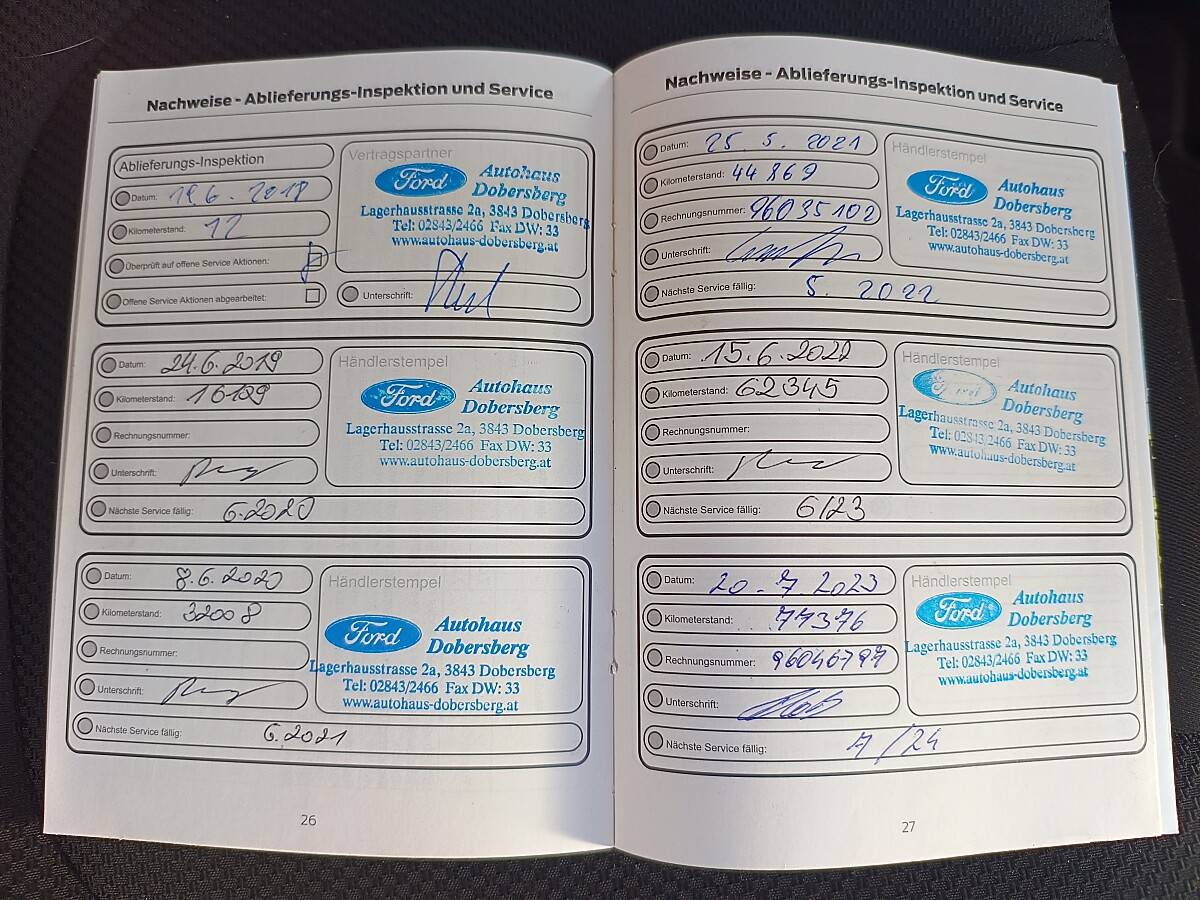 Nachweise - Ablieferungs-Inspektion und Service
Ablieferungs-Inspektion
Datum: 19.6.2018
Kilometerstand: 12
Überprüft auf offene Service Aktionen:
Offene Service Aktionen abgearbeitet:
Vertragspartner
Ford Autohaus
Dobersberg
Lagerhausstrasse 2a, 3843 Dobersberg
Tel: 02843/2466 Fax DW: 33
www.autohaus-dobersberg.at
Unterschrift:
Datum: 24.6.2019
Kilometerstand: 16129
Rechnungsnummer:
Unterschrift:
Nächste Service fällig: 6.2020
Händlerstempel
Ford Autohaus
Dobersberg
Lagerhausstrasse 2a, 3843 Dobersberg
Tel: 02843/2466 Fax DW: 33
www.autohaus-dobersberg.at
Datum: 8.6.2020
Kilometerstand: 32008
Rechnungsnummer:
Unterschrift:
Nächste Service fällig: 6.2021
Händlerstempel
Ford Autohaus
Dobersberg
Lagerhausstrasse 2a, 3843 Dobersberg
Tel: 02843/2466 Fax DW: 33
www.autohaus-dobersberg.at
26
Nachweise - Ablieferungs-Inspektion und Service
Datum: 25.5.2021
Kilometerstand: 44869
Rechnungsnummer: 96035102
Unterschrift:
Nächste Service fällig: 5.2022
Händlerstempel
Ford Autohaus
Dobersberg
Lagerhausstrasse 2a, 3843 Dobersberg
Tel: 02843/2466 Fax DW: 33
www.autohaus-dobersberg.at
Datum: 15.6.2022
Kilometerstand: 62345
Rechnungsnummer:
Unterschrift:
Nächste Service fällig: 6/23
Händlerstempel
Ford Autohaus
Dobersberg
Lagerhausstrasse 2a, 3843 Dobersberg
Tel: 02843/2466 Fax DW: 33
www.autohaus-dobersberg.at
Datum: 20.7.2023
Kilometerstand: 77376
Rechnungsnummer: 96046797
Unterschrift:
Nächste Service fällig: 7/24
Händlerstempel
Ford Autohaus
Dobersberg
Lagerhausstrasse 2a, 3843 Dobersberg
Tel: 02843/2466 Fax DW: 33
www.autohaus-dobersberg.at
27